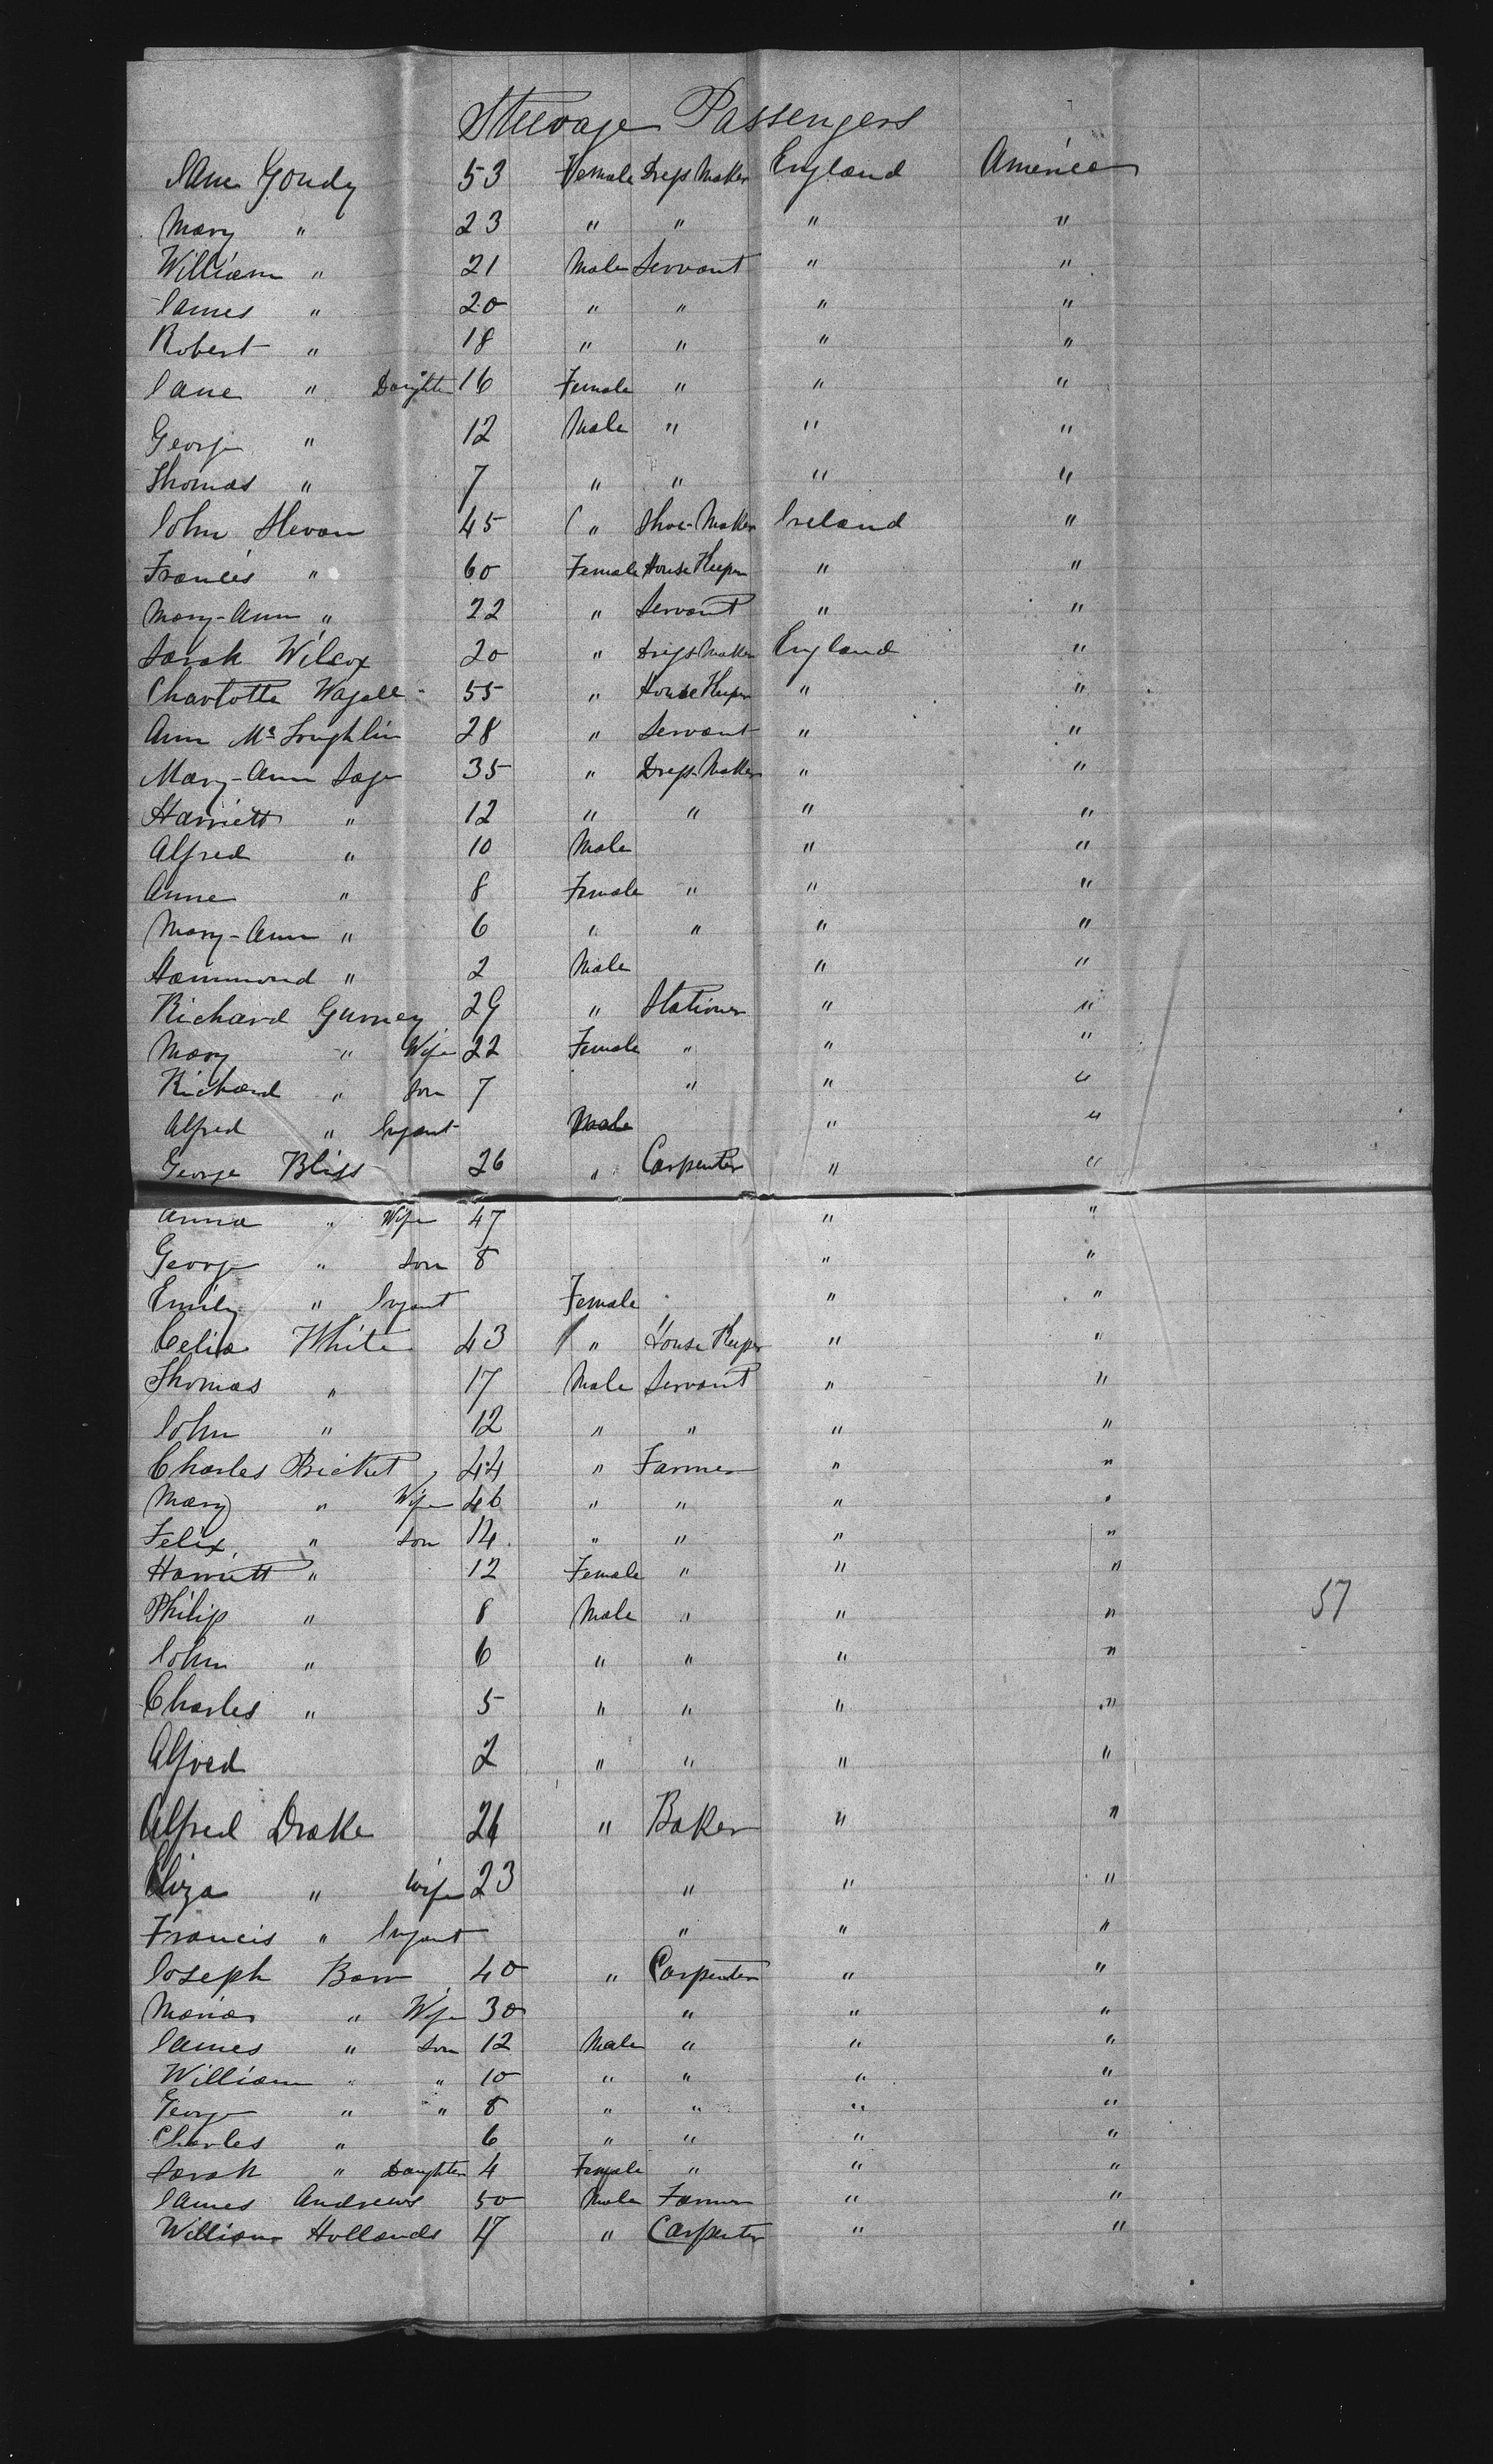 Steerage Passengers
Jane Goudy 53 Female Dress Maker England America
Mary " 23 " " " "
William " 21 Male Servant " "
James " 20 " " " "
Robert " 18 " " " "
Jane " Daughter 16 Female " " "
George " 12 Male " " "
Thomas " 7 " " " "
John Slevan 45 " Shoe-Maker Ireland "
Francis " 60 Female House Keeper " "
Mary-Ann " 22 " Servant " "
Sarah Wilcox 20 " Dress Maker England "
Charlotte 55 " House Keeper " "
Ann Mc Loughlin 28 " Servant " "
Mary-Ann Sage 35 " Dress-Maker " "
Harriett " 12 " " " "
Alfred " 10 Male " "
Anne " 8 Female " " "
Mary-Ann " 6 " " " "
Hammond " 2 Male " "
Richard Gurney 29 " Stationer " "
Mary " Wife 22 Female " " "
Richard " Son 7 " " "
Alfred " Infant Male " "
George Bliss 26 " Carpenter " "
Anna " Wife 47 " "
George " Son 8 " "
Emily " Infant Female " "
Celia White 43 " House Keeper " "
Thomas " 17 Male Servant " "
John " 12 " " " "
Charles Bricket 44 " Farmer " "
Mary " Wife 46 " " " "
Felix " Son 14 " " " "
Harriett " 12 Female " " "
Philip " 8 Male " " " 57
John " 6 " " " "
Charles " 5 " " " "
Alfred 2 " " " "
Alfred Drake 26 " Baker " "
Eliza " Wife 23 " " "
Francis " Infant " " "
Joseph Barr 40 " Carpenter " "
Maria " Wife 30 " " "
James " Son 12 Male " " "
William " " 10 " " " "
George " " 8 " " " "
Charles " 6 " " " "
Sarah " Daughter 4 Female " " "
James Andrews 50 Male Farmer " "
William Hollands 17 " Carpenter " "